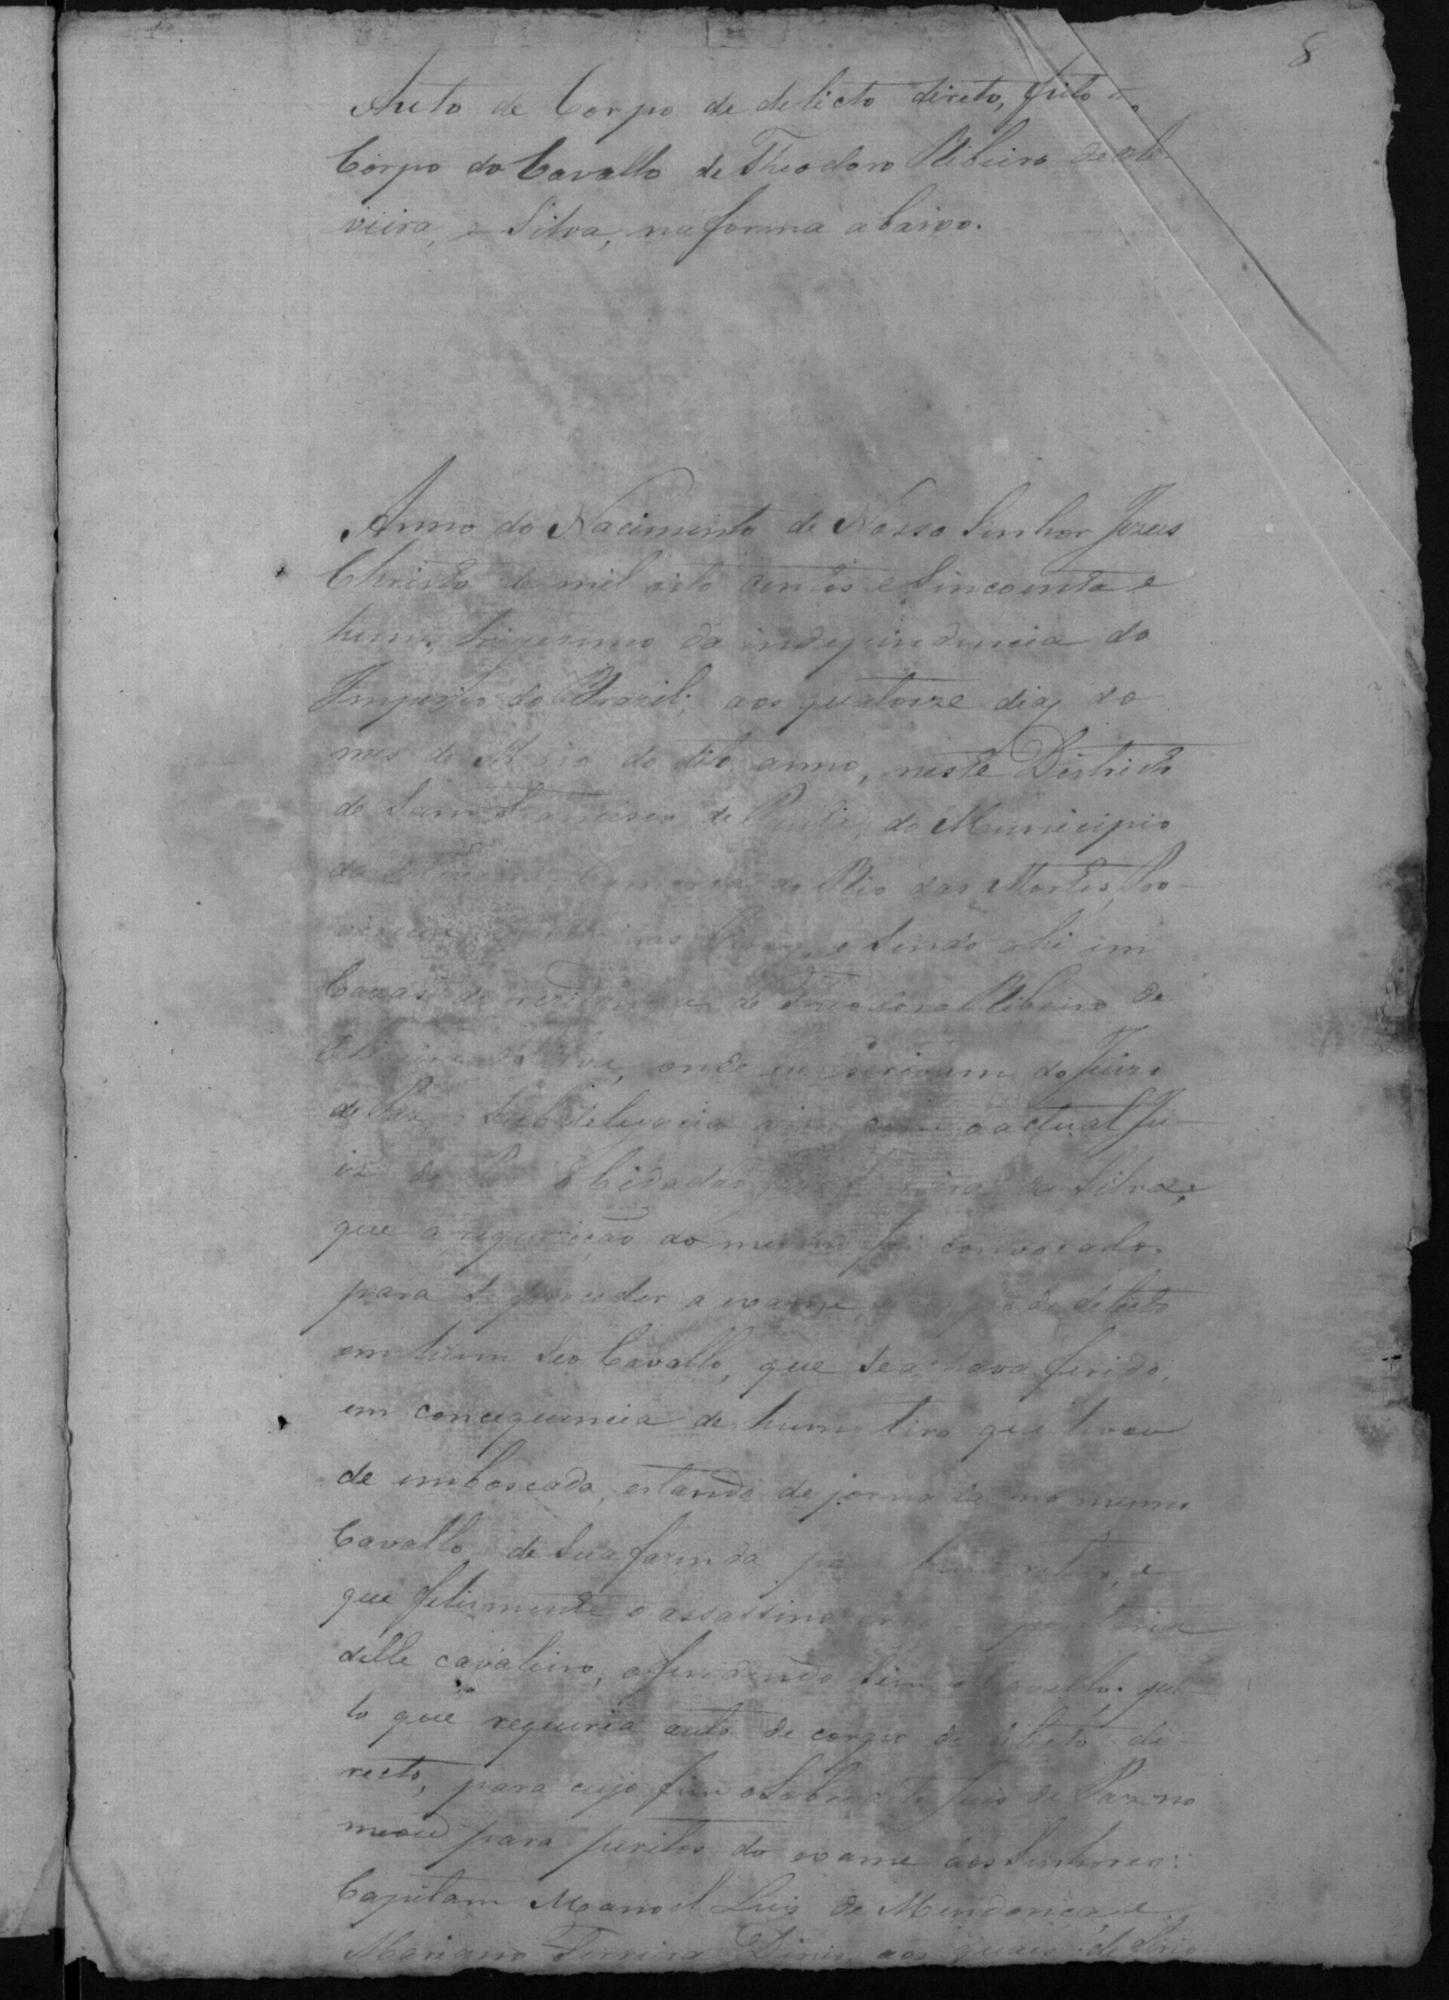 8
Auto de Corpo de delicto direto, feito no
Corpo do Cavallo de Theodoro Ribeiro de Oli
vieira, e Silva, na forma abaixo.
Anno do Nacimento de Nosso Senhor Jezus
Christo de mil oito centos e Sincoenta e
hum, trigesimo da independencia do
Imperio do Brazil; aos quatorze dias do
mes de do dito anno, neste Districto
de Sam Francisco de Paula, do Municipio
da Comarca do Rio das Mortes, Pro-
e sendo ahi em
Cazas de rezidencia de Theodoro Ribeiro de
onde eu Escrivam do Juizo
de Paz e Subdelegacia vim com o actual Ju-
iz de Paz o Cidadão da Silva, e
que a requizição do mesmo foi convocado
para se proceder a exame, e corpo de delicto
em hum seo Cavallo, que se achava ferido,
em concequencia de hum tiro que levou
de emboscada, estando de jornada no mesmo
Cavallo de sua fazenda e
que felismente o assassino errou a pontaria
delle cavaleiro, offendendo sim o Cavallo. pel
lo que requeria auto de corpo de delicto di-
recto, para cujo fim o Sobredito Juis de Paz no
meou para peritos do exame aos Senhores:
Capitam Manoel Luis de Mendonca, e
Mariano Ferreira Dinis, aos quais deferio